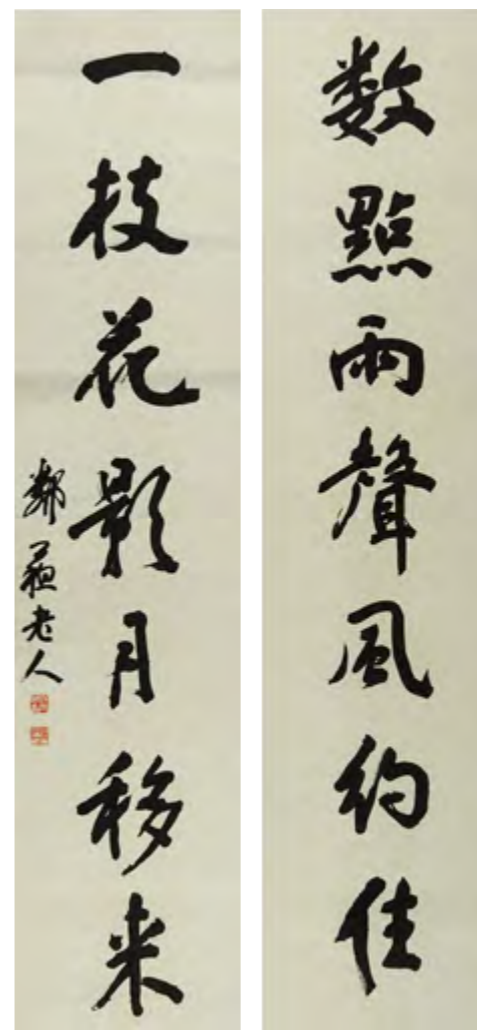 数點雨聲風約住
一枝花影月移来
鄰蘇老人